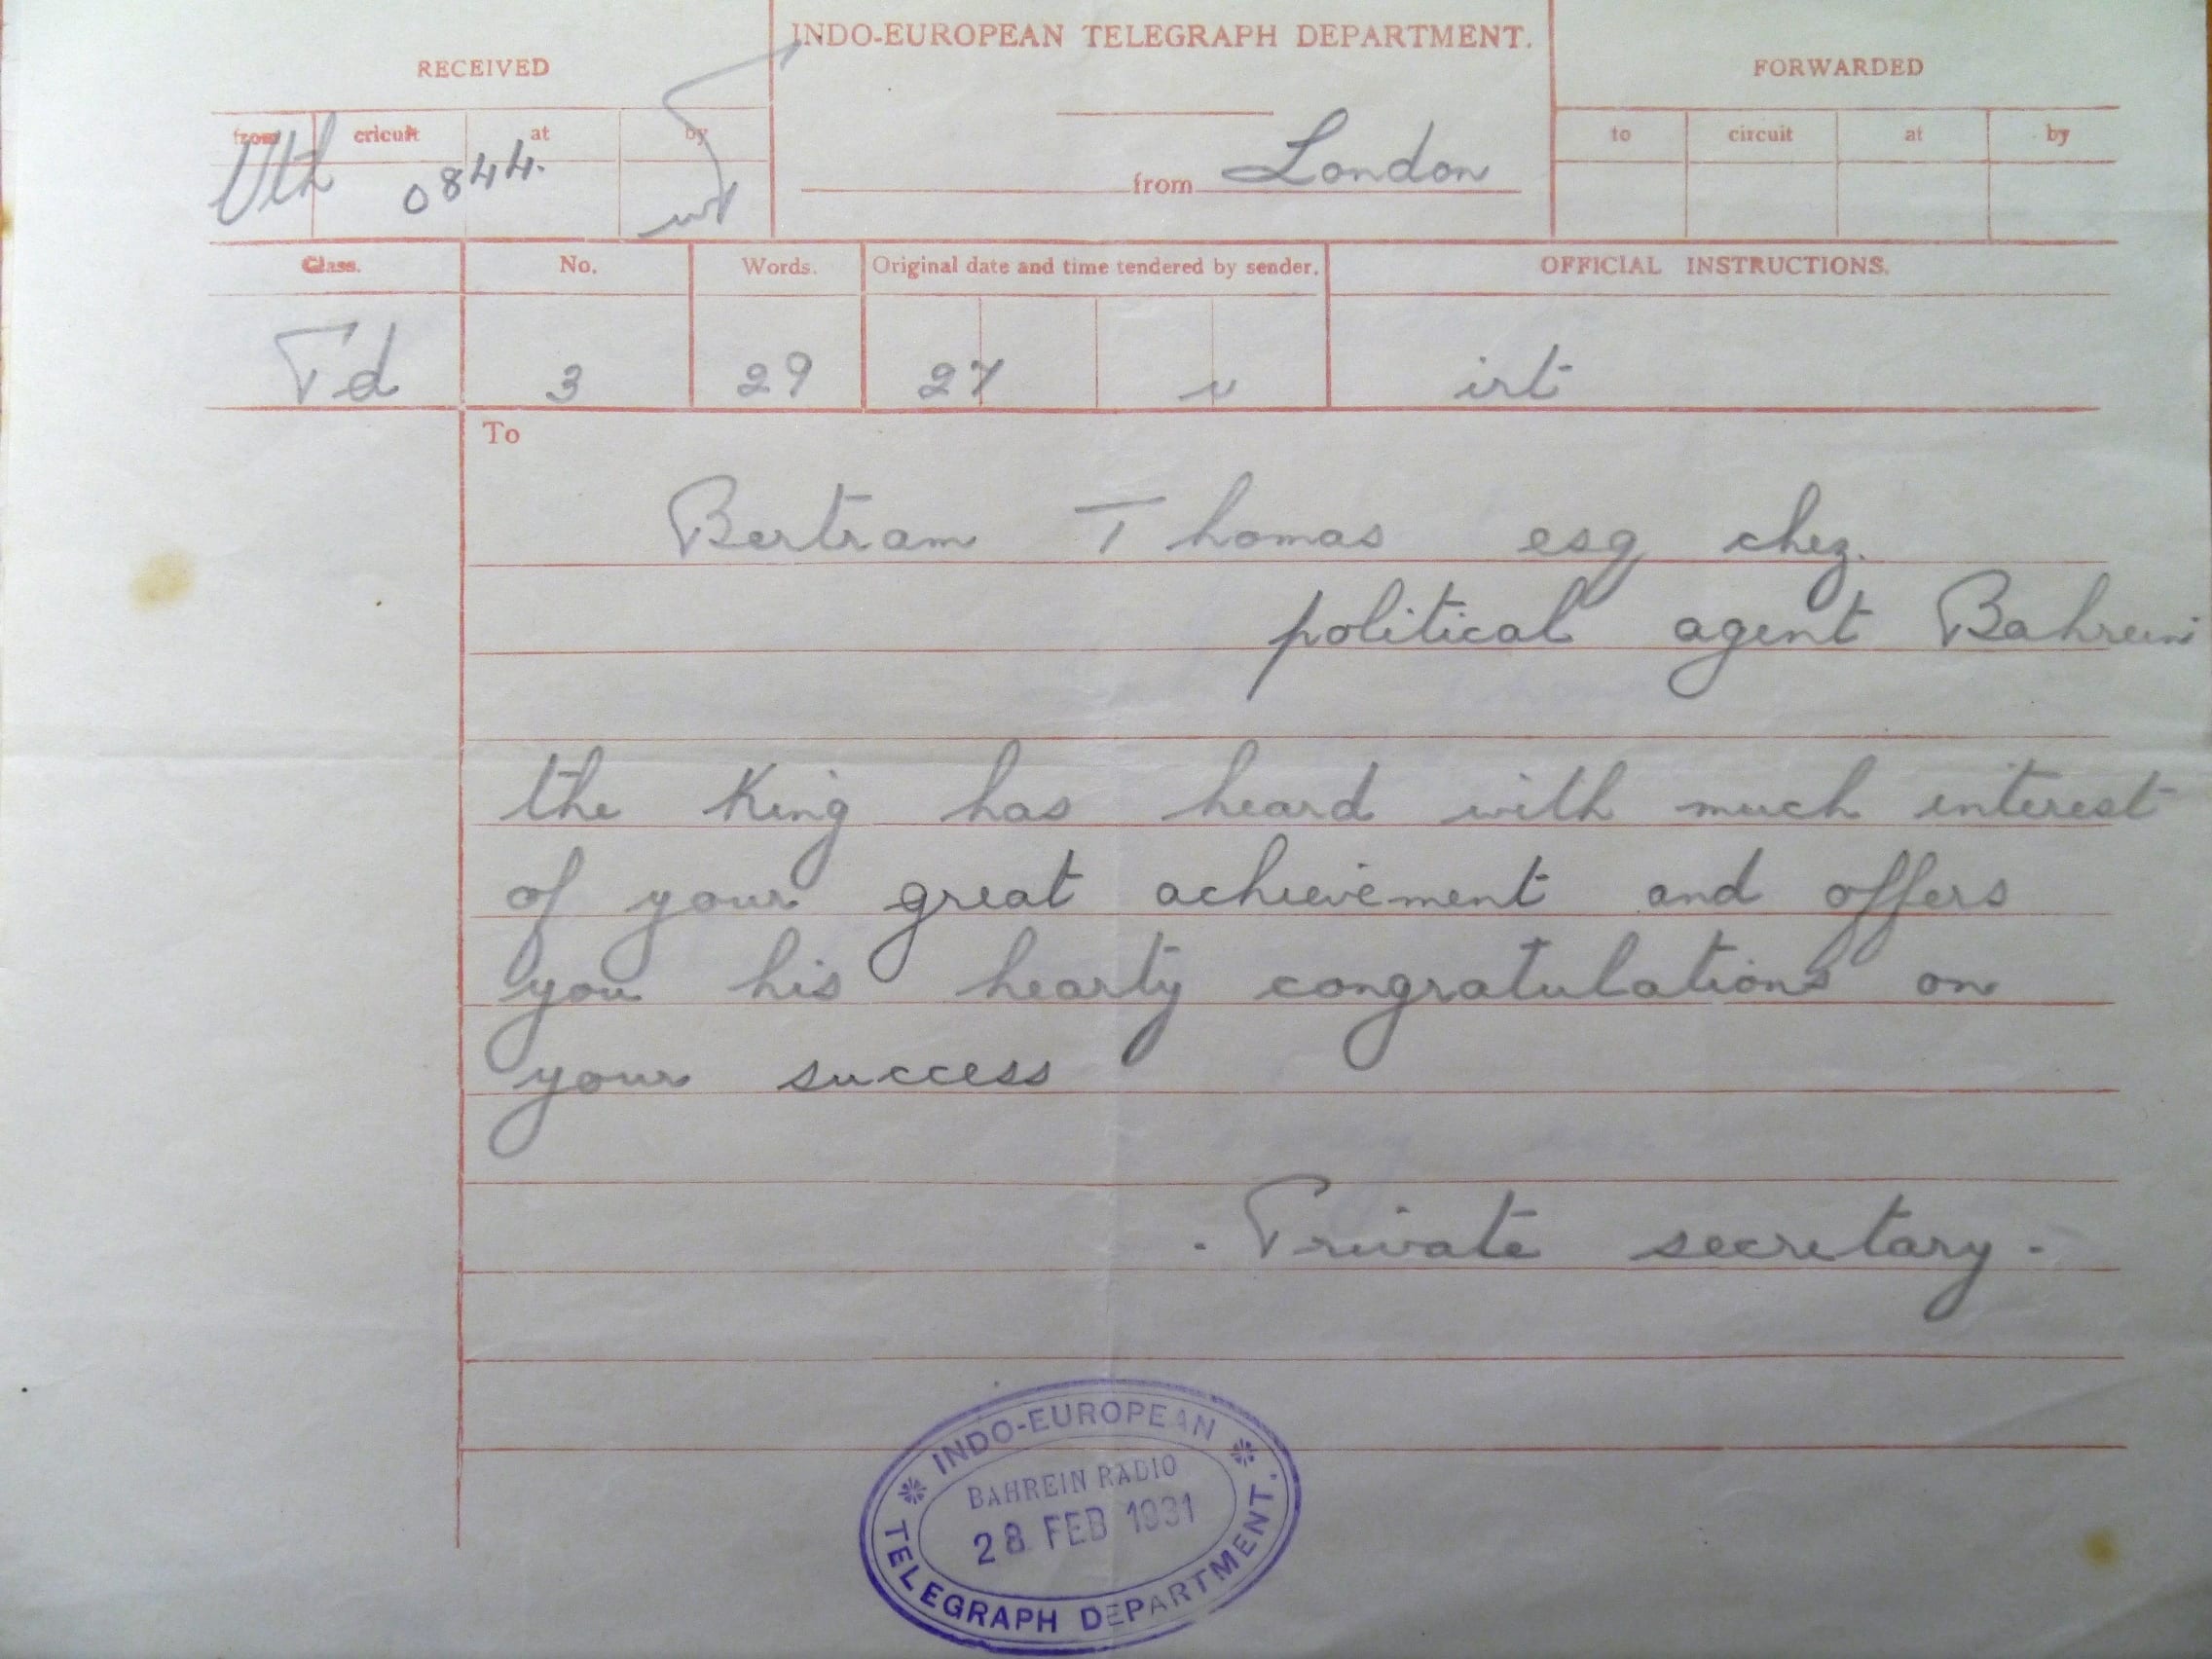 INDO-EUROPEAN TELEGRAPH DEPARTMENT.
RECEIVED
FORWARDED
from cricuit at by
from London
to circuit at by
0844.
Class. No. Words. Original date and time tendered by sender. OFFICIAL INSTRUCTIONS.
3 29 27 irt
To
Bertram Thomas esq chez.
political agent Bahrein
the King has heard with much interest
of your great achievement and offers
you his hearty congratulations on
your success
. Private secretary -
INDO-EUROPEAN
BAHREIN RADIO
28 FEB 1931
TELEGRAPH DEPARTMENT.